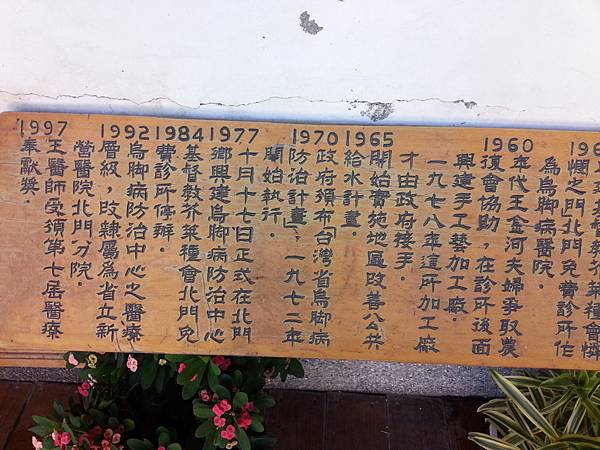 基督教芥菜種會憐
憫之門」北門免費診所作
為烏腳病醫院。
1960
年代王金河夫婦爭取農
復會協助，在診所後面
興建手工藝加工廠。
一九七八年這所加工廠
才由政府接手。
1965
開始實施地區改善公共
給水計畫。
1970
政府頒布「台灣省烏腳病
防治計畫」，一九七二年
開始執行。
1977
十月十七日正式在北門
鄉興建烏腳病防治中心
1984
基督教芥菜種會北門免
費診所停辦。
1992
烏腳病防治中心之醫療
層級，改隸屬為省立新
營醫院北門分院。
1997
王醫師受頒第七屆醫療
奉獻獎。